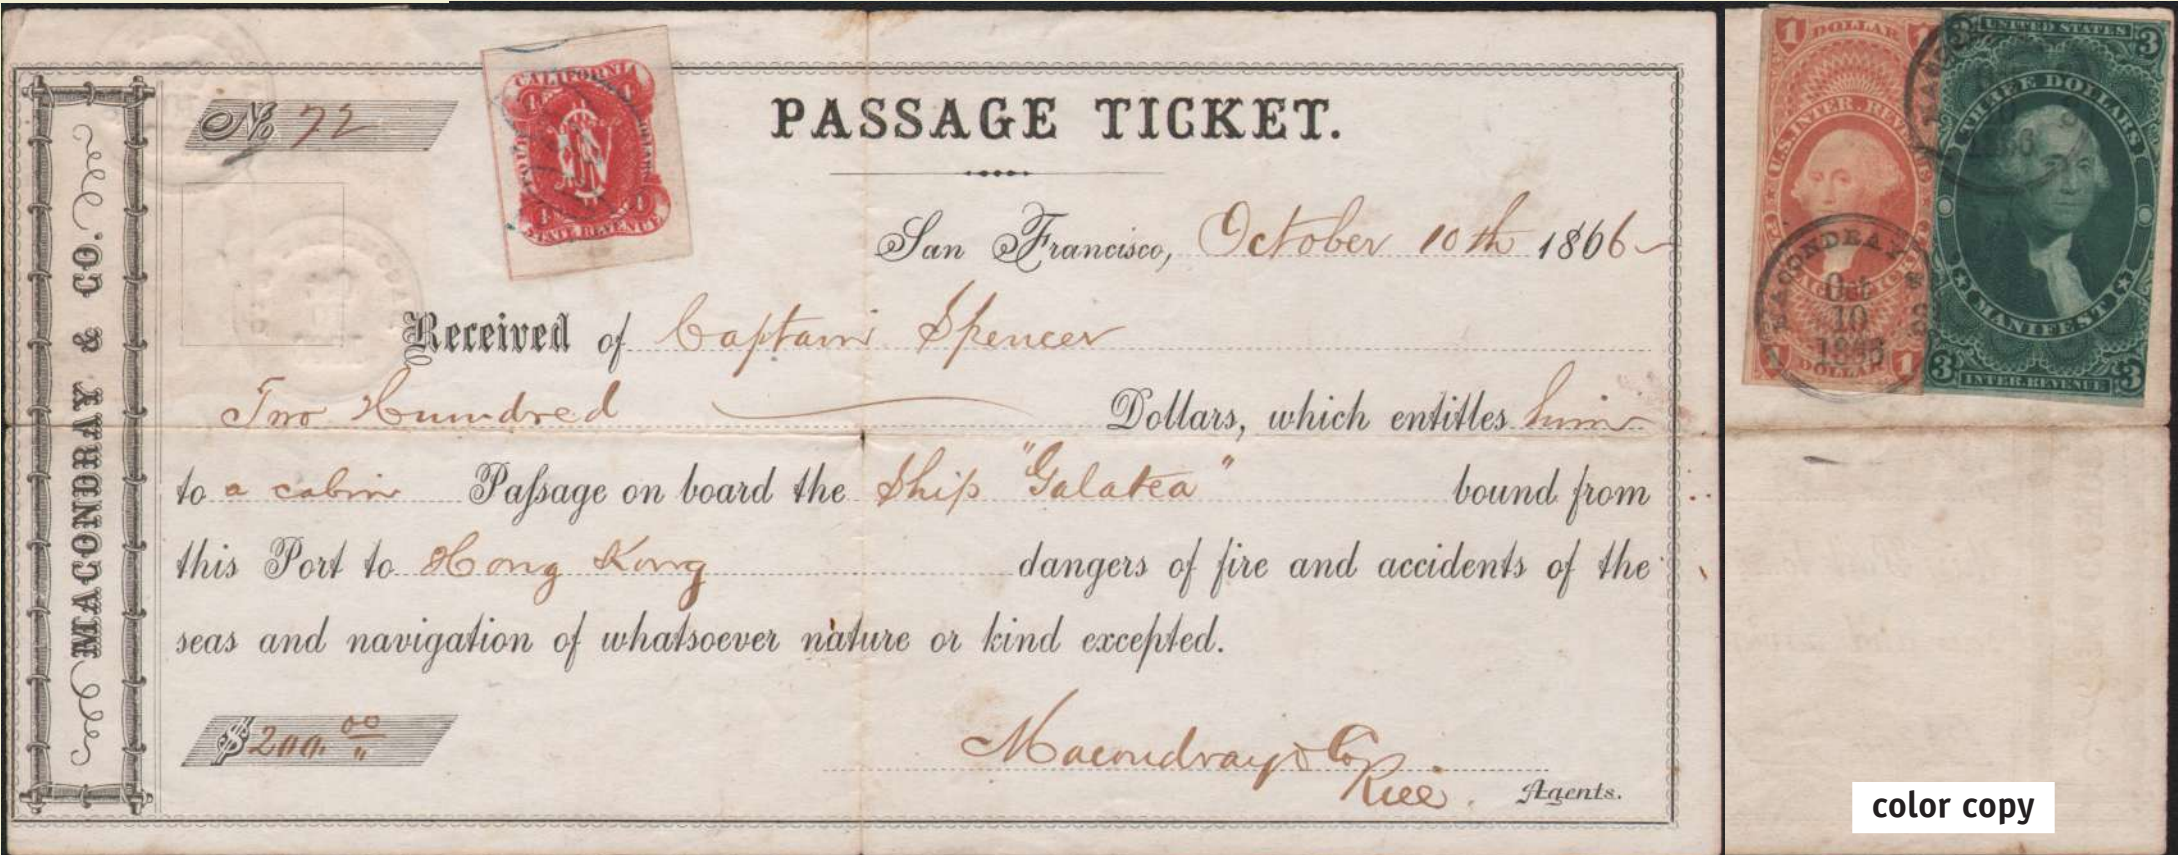 MACONDRAY & CO.
No. 72
CALIFORNIA
4 4
FOUR DOLLARS
4 4
STATE REVENUE
PASSAGE TICKET.
San Francisco, October 10th 1866
Received of Captain Spencer
Two Hundred Dollars, which entitles him
to a cabin Passage on board the Ship "Galatea" bound from
this Port to Hong Kong dangers of fire and accidents of the
seas and navigation of whatsoever nature or kind excepted.
$ 200. 00
Macondray & Co
Rice. Agents.
1 DOLLAR 1
U.S. INTER. REV
MACONDRAY & CO
Oct
10
1866
1 DOLLAR 1
3 UNITED STATES 3
THREE DOLLARS
MANIFEST
3 INTER. REVENUE 3
color copy